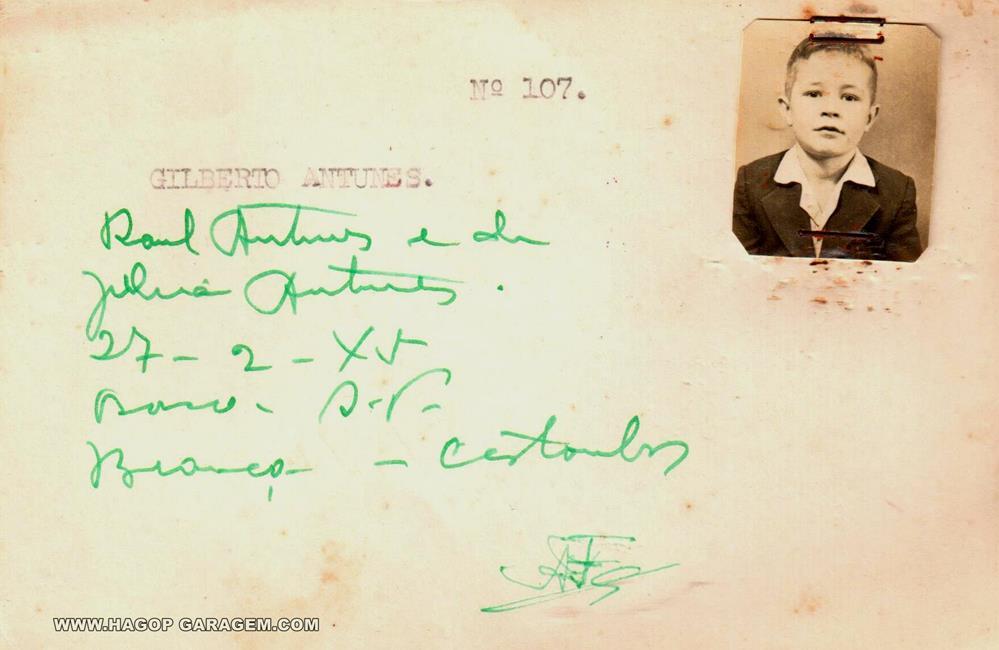 Nº 107.
GILBERTO ANTUNES.
Raul Antunes e de
Antunes.
27-2-XV
S.P.
Branca - castanhos
WWW.HAGOP GARAGEM.COM